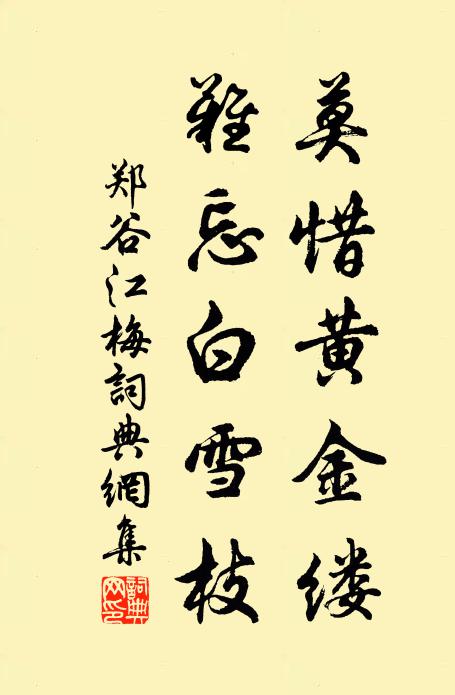 莫惜黄金缕
難忘白雪枝
郑谷江梅詞典網集
詞典网印